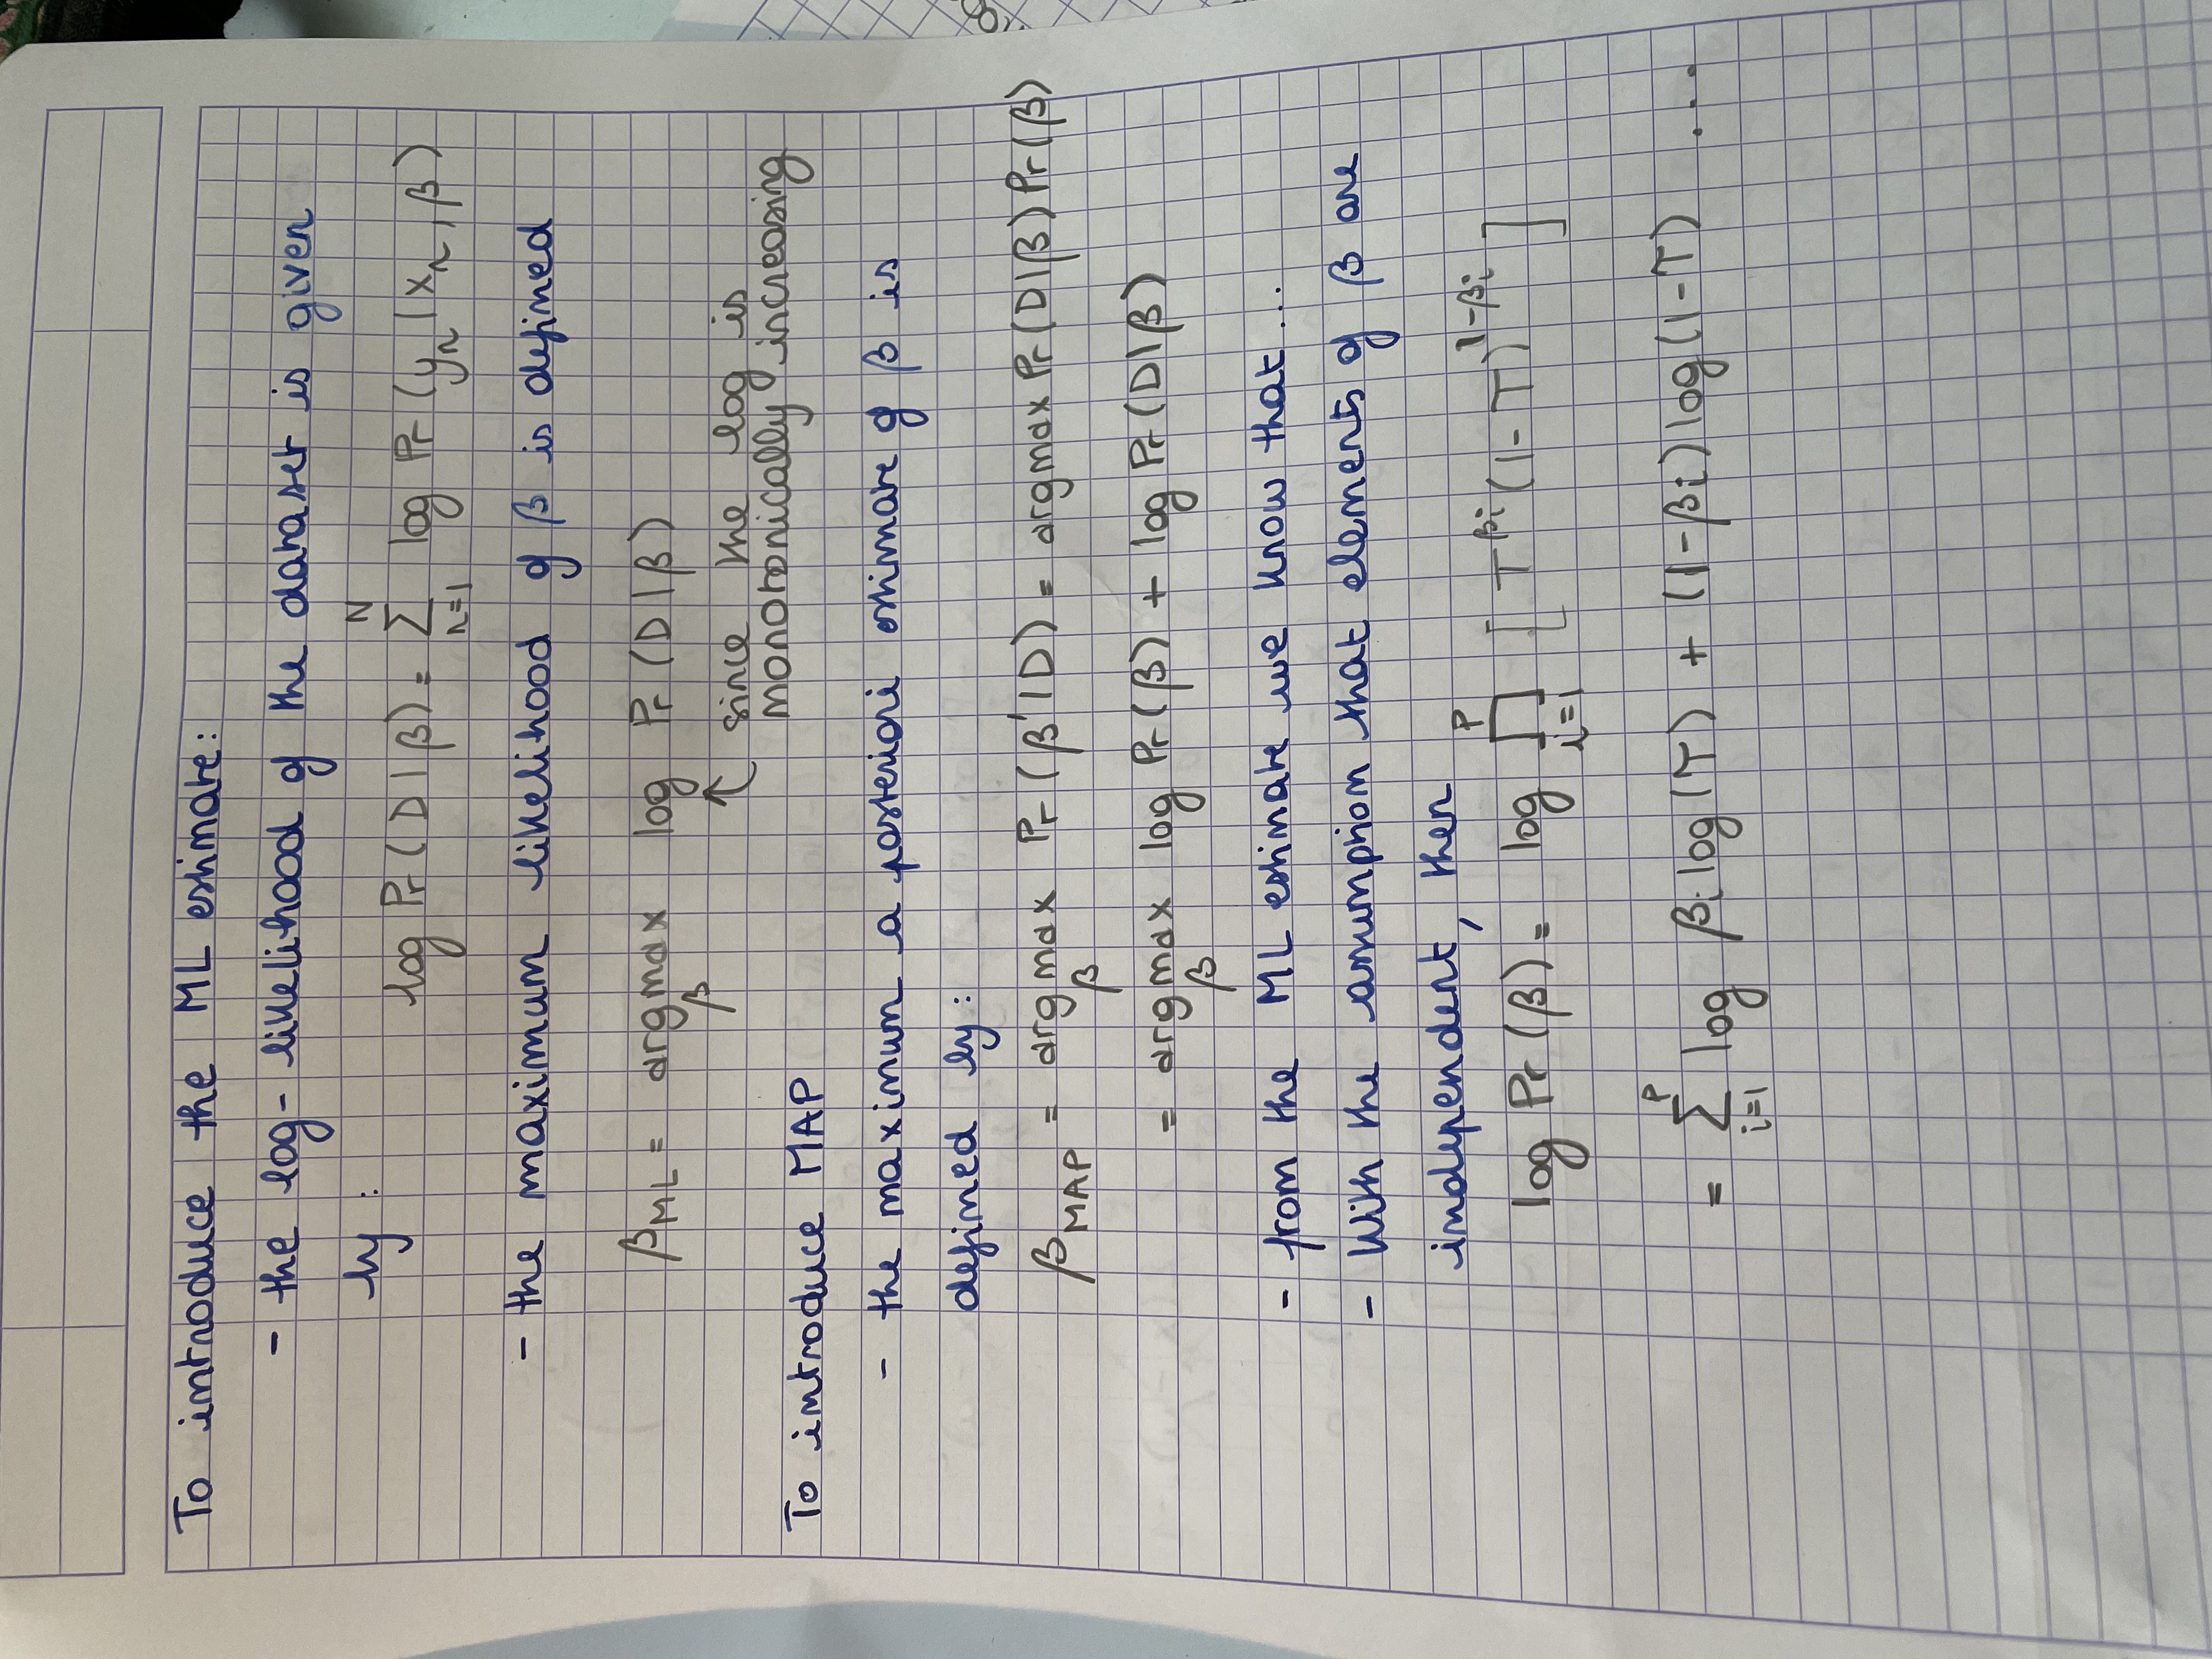 To introduce the ML estimate:
- the log-likelihood of the dataset is given
by :
log Pr(D|β) = Σ_{n=1}^{N} log Pr(yₙ|xₙ, β)
- the maximum likelihood of β is defined
β_ML = argmax_β log Pr(D|β)
↑ since the log is
monotonically increasing
To introduce MAP
- the maximum a posteriori estimate of β is
defined by:
β_MAP = argmax_β Pr(β'|D) = argmax Pr(D|β) Pr(β)
= argmax_β log Pr(β) + log Pr(D|β)
- from the ML estimate we know that ...
- With the assumption that elements of β are
independent, then
log Pr(β) = log ∏_{i=1}^{P} [T^{βi} (1-T)^{1-βi}]
= Σ_{i=1}^{P} log βi log(T) + (1-βi) log(1-T) ...